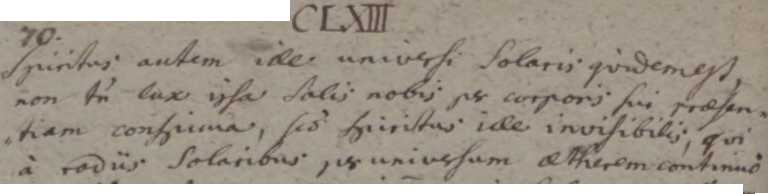 CLXIII
70.
Spiritus autem ille universi Solaris quidem est,
non tñ lux ipsa Solis nobis pr corporis sui præsen„
„tiam conspicua, sed spiritus ille invisibilis, qui
à radiis Solaribus pr universum ætherem continuò